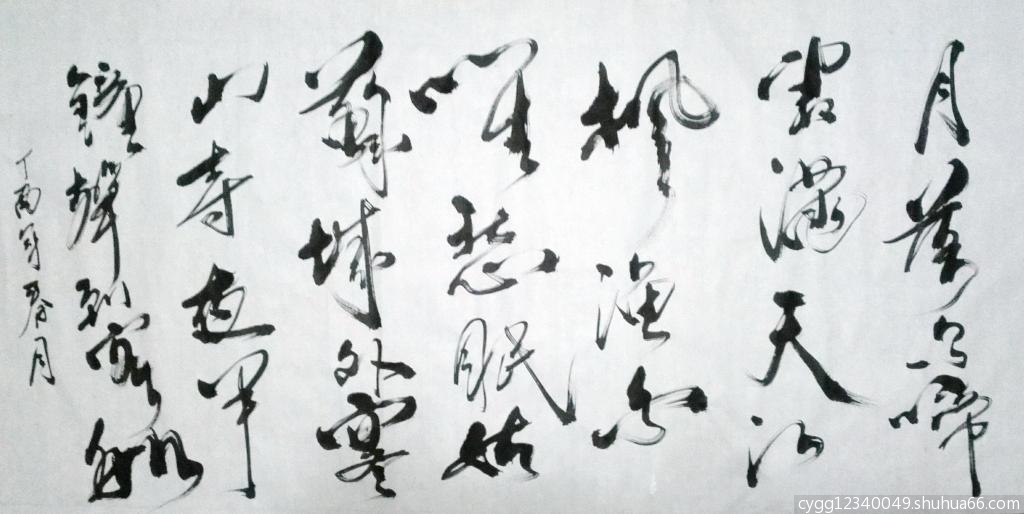 月落烏啼
霜滿天江
楓漁火
對愁眠姑
蘇城外寒
山寺夜半
鐘聲到客船
丁酉年春月
cygg12340049.shuhua66.com